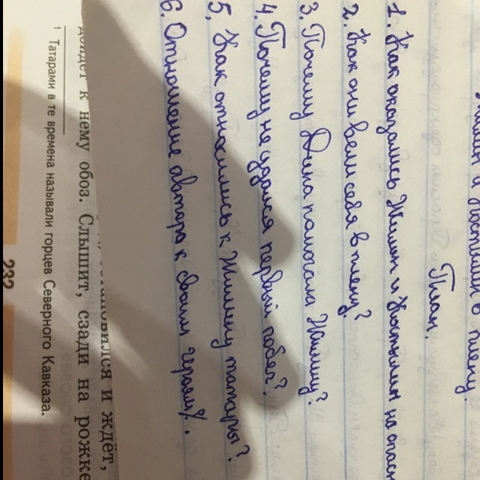 Жилин и Костылин в плену.
План.
1. Как оказались Жилин и Костылин на опасн
2. Как они вели себя в плену?
3. Почему Дина помогала Жилину?
4. Почему не удался первый побег?
5. Как относились к Жилину татары?
6. Отношение автора к своим героям.
становился и ждёт,
дойдёт к нему обоз. Слышит, сзади на рожке
¹ Татарами в те времена называли горцев Северного Кавказа.
232